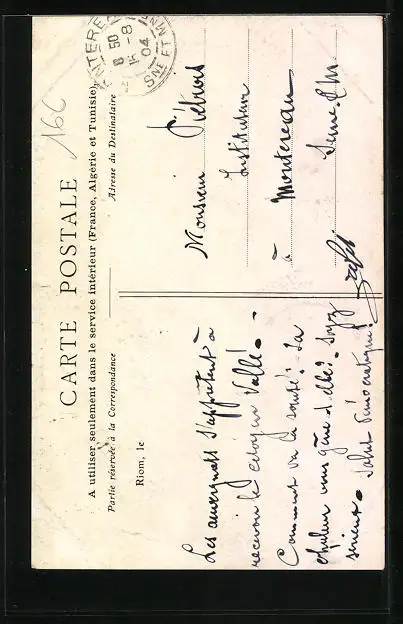 CARTE POSTALE
A utiliser seulement dans le service intérieur (France, Algérie et Tunisie).
Partie réservée à la Correspondance
Adresse du Destinataire
Riom, le
Les auvergnats s'apprêtent à
recevoir le citoyen Vallé.
Comment va la santé? La
chaleur vous gêne-t-elle? Soyez
sérieux. Salut démocratique!
Monsieur
Instituteur
à Montereau
Seine & M
166
8 50
15 -8
04
SNE ET MNE